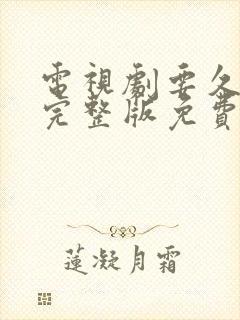 電視劇要久
完整版免費
蓮凝月霜